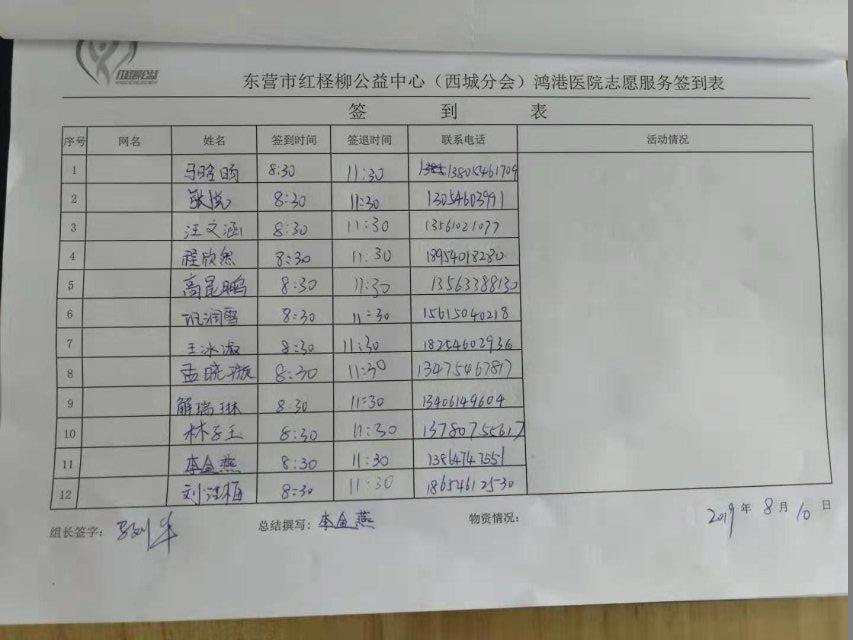 东营市红柽柳公益中心（西城分会）鸿港医院志愿服务签到表
签到表
序号 网名 姓名 签到时间 签退时间 联系电话 活动情况
1 8:30 11:30 13805461709
2 耿悦 8:30 11:30 13054603991
3 汪文涵 8:30 11:30 13561021077
4 程欣然 8:30 11:30 18954018280
5 高昆鹏 8:30 11:30 13563388130
6 润雪 8:30 11:30 15615040218
7 王冰淑 8:30 11:30 18254602936
8 孟晓璇 8:30 11:30 13475467817
9 解瑞琳 8:30 11:30 13406149604
10 林子玉 8:30 11:30 13780755617
11 李金燕 8:30 11:30 13864747551
12 刘江梅 8:30 11:30 18654612530
组长签字： 总结撰写：李金燕 物资情况： 2019年8月10日